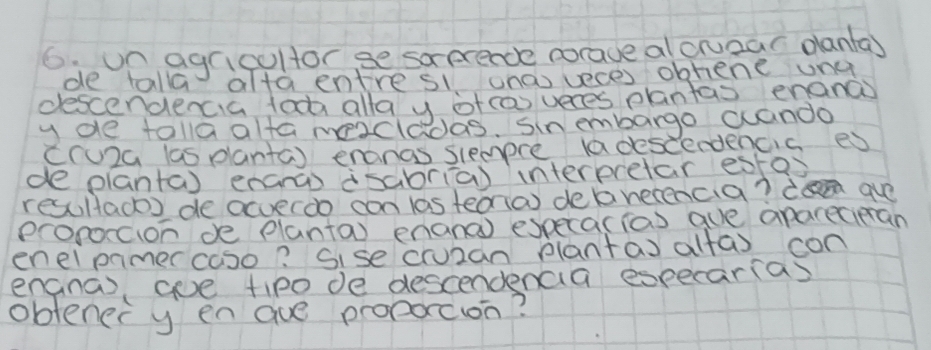 6. un agricultor se sorprende porque al cruzar plantas
de talla alta entre si, unas veces obtiene una
descendencia toda alta y otras veces plantas enanas
y de talla alta mezcladas. Sin embargo cuando
cruza las plantas enanas siempre la descendencia es
de plantas enanas ¿sabrias interpretar estos
resultados de acuerdo con las teorias de la herencia? ¿ que
proporción de plantas enanas esperarias que aparecieran
en el primer caso? Si se cruzan plantas altas con
enanas, que tipo de descendencia esperarias
obtener y en que proporción?